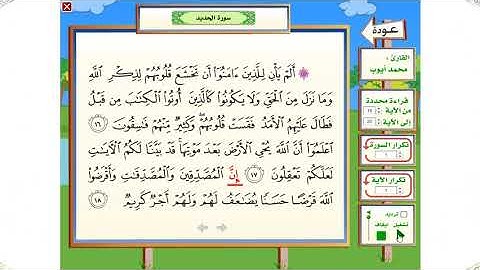 سورة الحديد
۞ أَلَمْ يَأْنِ لِلَّذِينَ ءَامَنُوٓا۟ أَن تَخْشَعَ قُلُوبُهُمْ لِذِكْرِ ٱللَّهِ
وَمَا نَزَلَ مِنَ ٱلْحَقِّ وَلَا يَكُونُوا۟ كَٱلَّذِينَ أُوتُوا۟ ٱلْكِتَٰبَ مِن قَبْلُ
فَطَالَ عَلَيْهِمُ ٱلْأَمَدُ فَقَسَتْ قُلُوبُهُمْ ۖ وَكَثِيرٌ مِّنْهُمْ فَٰسِقُونَ ١٦
ٱعْلَمُوٓا۟ أَنَّ ٱللَّهَ يُحْىِ ٱلْأَرْضَ بَعْدَ مَوْتِهَا ۚ قَدْ بَيَّنَّا لَكُمُ ٱلْءَايَٰتِ
لَعَلَّكُمْ تَعْقِلُونَ ١٧ إِنَّ ٱلْمُصَّدِّقِينَ وَٱلْمُصَّدِّقَٰتِ وَأَقْرَضُوا۟
ٱللَّهَ قَرْضًا حَسَنًا يُضَٰعَفُ لَهُمْ وَلَهُمْ أَجْرٌ كَرِيمٌ ١٨
عودة
القارئ :
محمد أيوب
قراءة محددة
من الآية
إلى الآية
تكرار السورة
تكرار الآية
ترديد
تشغيل ايقاف